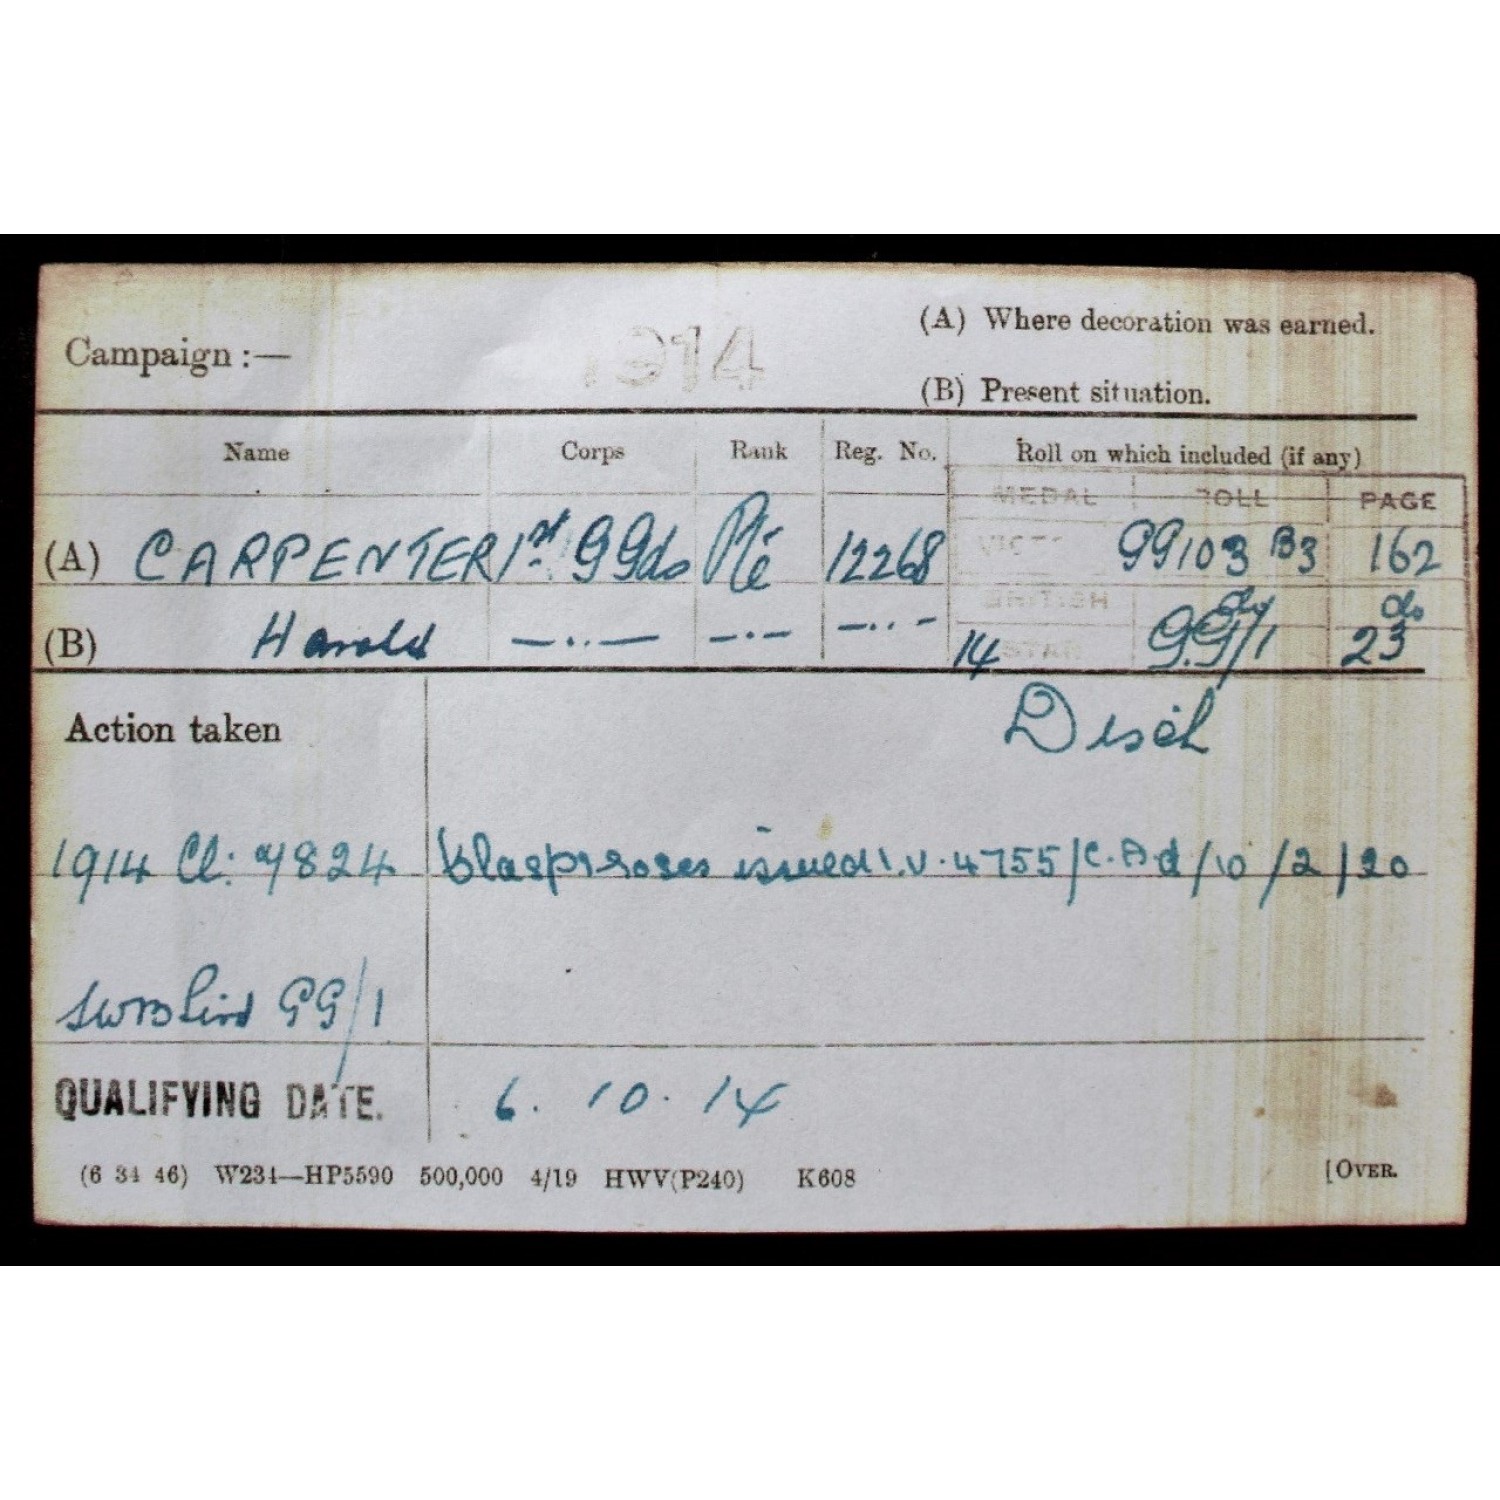 (A) Where decoration was earned.
Campaign :— 1914
(B) Present situation.
Name Corps Rank Reg. No. Roll on which included (if any)
MEDAL ROLL PAGE
(A) CARPENTER 1st G Gds Pte 12268 VICTO GG103 B3 162
BRITISH do do
(B) Harold —..— —..— —..— 14 STAR GG/1 23
Action taken Disch
1914 Cl: 4824 Clasp & roses issued I.V. 4755/C.Ad/10/2/20
SWB List GG/1
QUALIFYING DATE. 6. 10. 14
(6 34 46) W234—HP5590 500,000 4/19 HWV(P240) K608 [OVER.